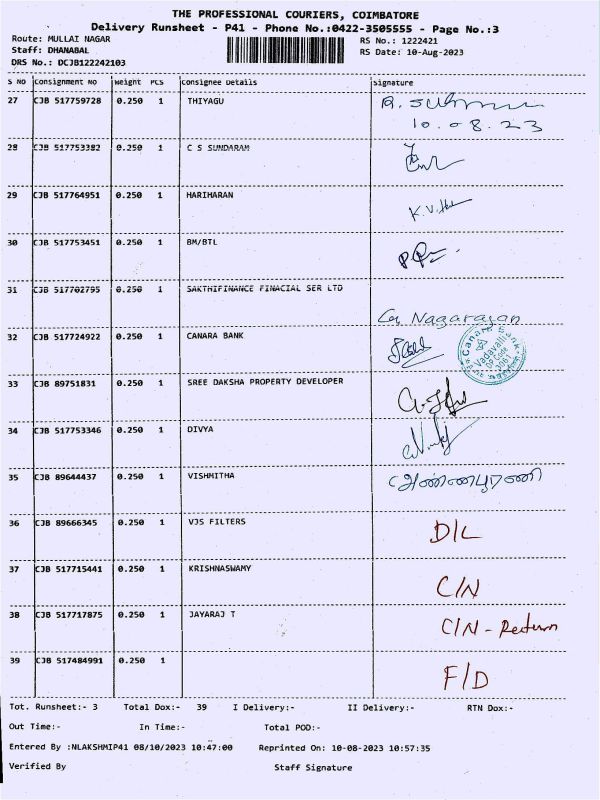 THE PROFESSIONAL COURIERS, COIMBATORE
Delivery Runsheet - P41 - Phone No.:0422-3505555 - Page No.:3
Route: MULLAI NAGAR
Staff: DHANABAL
DRS No.: DCJB122242103
RS No.: 1222421
RS Date: 10-Aug-2023
S NO Consignment NO Weight PCS Consignee Details Signature
27 CJB 517759728 0.250 1 THIYAGU
10.08.23
28 CJB 517753382 0.250 1 C S SUNDARAM
29 CJB 517764951 0.250 1 HARIHARAN
30 CJB 517753451 0.250 1 BM/BTL
31 CJB 517702795 0.250 1 SAKTHIFINANCE FINACIAL SER LTD
Nagarajan
32 CJB 517724922 0.250 1 CANARA BANK
Canara Bank
Vadavalli
DP Code
33 CJB 89751831 0.250 1 SREE DAKSHA PROPERTY DEVELOPER
34 CJB 517753346 0.250 1 DIVYA
35 CJB 89644437 0.250 1 VISHMITHA அன்னபூரணி
36 CJB 89666345 0.250 1 VJS FILTERS D/L
37 CJB 517715441 0.250 1 KRISHNASWAMY C/N
38 CJB 517717875 0.250 1 JAYARAJ T C/N - Return
39 CJB 517484991 0.250 1 F/D
Tot. Runsheet:- 3 Total Dox:- 39 I Delivery:- II Delivery:- RTN Dox:-
Out Time:- In Time:- Total POD:-
Entered By :NLAKSHMIP41 08/10/2023 10:47:00 Reprinted On: 10-08-2023 10:57:35
Verified By Staff Signature